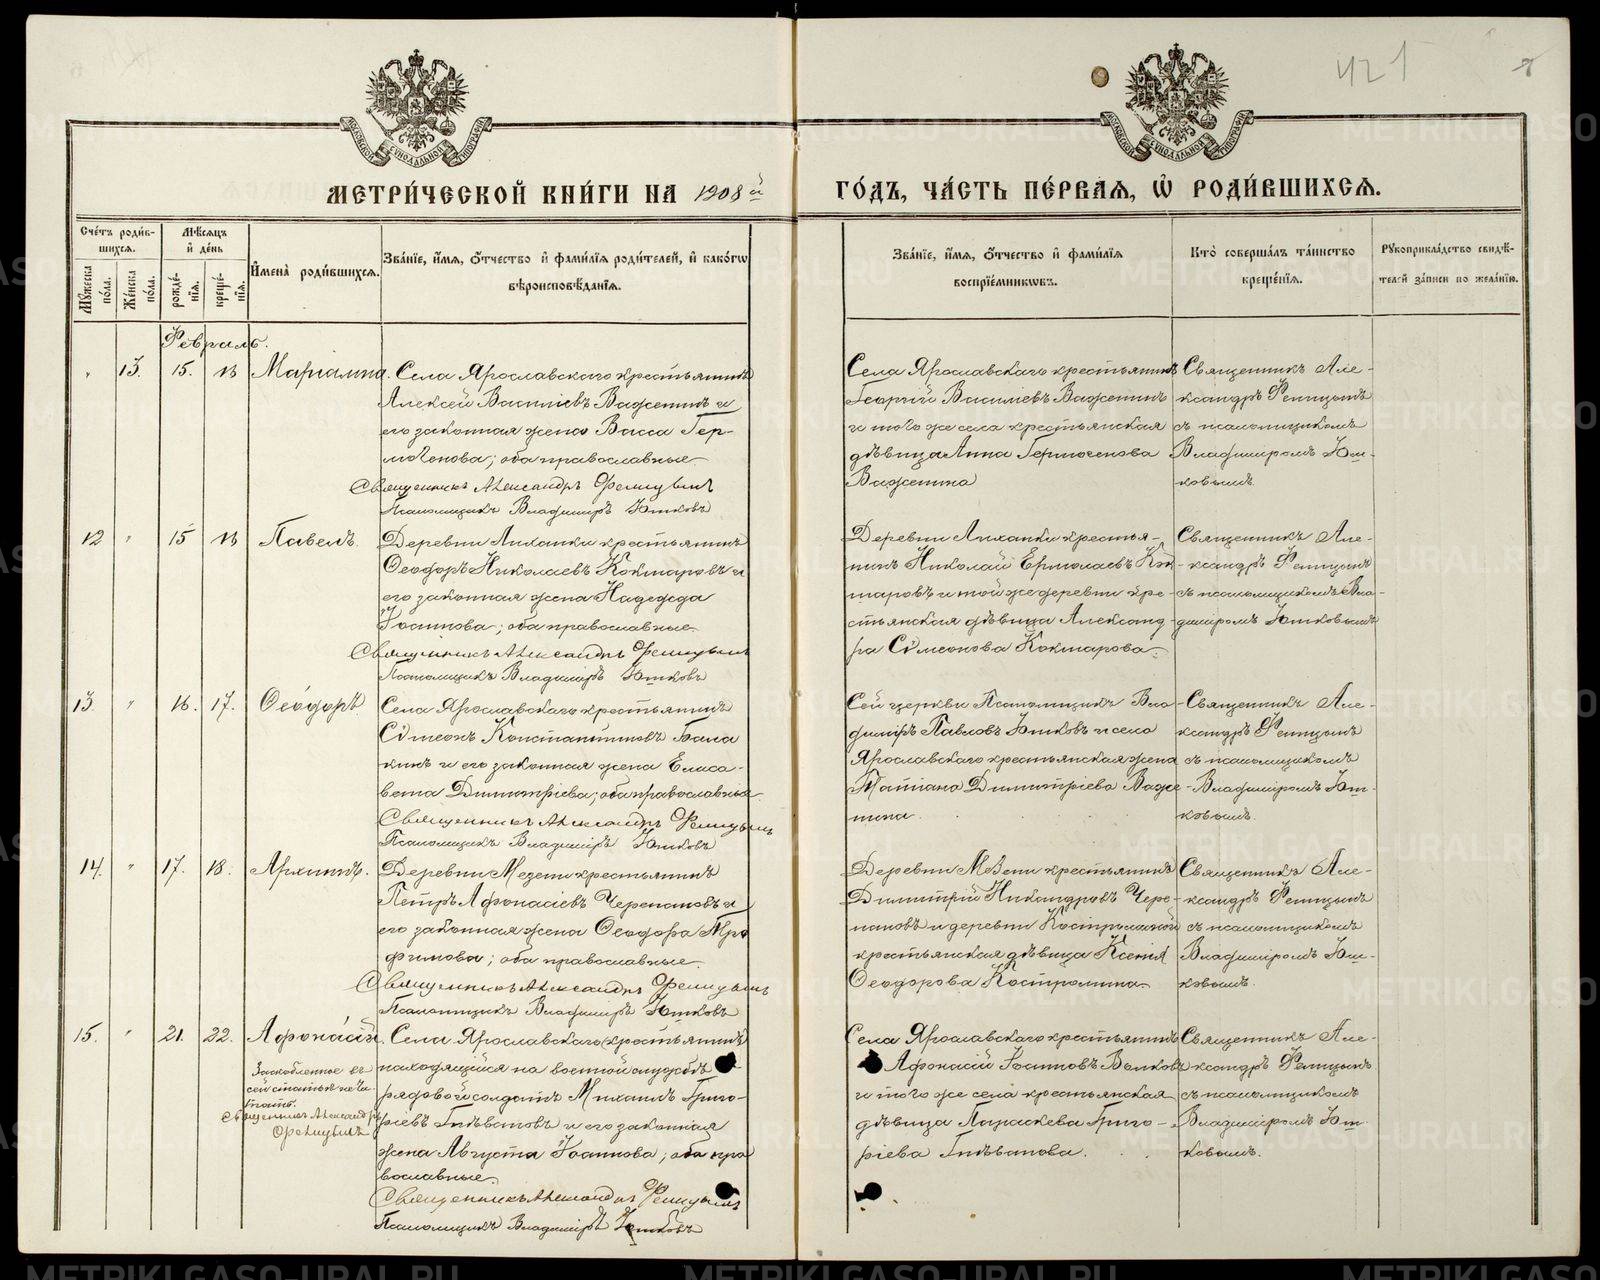 421
МОСКОВСКОЙ СУНОДАЛЬНОЙ ТИПОГРАФІИ
МОСКОВСКОЙ СУНОДАЛЬНОЙ ТИПОГРАФІИ
МЕТРИ́ЧЕСКОЙ КНИ́ГИ НА 1908й
ГО́ДЪ, ЧА́СТЬ ПЕ́РВАѦ, Ѡ҆ РОДИ́ВШИХСѦ.
Сче́тъ роди́в-
шихсѧ.
Мѹ́жеска по́ла.
Же́нска по́ла.
Мѣ́сѧцъ
и҆ де́нь
рожде́-нїѧ.
креще́-нїѧ.
И҆мена̀ роди́вшихсѧ.
Зва́нїе, и҆́мѧ, ѻ҆́тчество и҆ фами́лїѧ роди́телей, и҆ како́гѡ
вѣроисповѣ́данїѧ.
Зва́нїе, и҆́мѧ, ѻ҆́тчество и҆ фами́лїѧ
воспрїе́мникѡвъ.
Кто̀ соверша́лъ та́инство
креще́нїѧ.
Рꙋкоприкла́дство свидѣ́-
телей за́писи по жела́нїю.
Февраль.
" 13. 15. 16 Маріамна. Села Ярославскаго крестьянинъ
Алексей Василіевъ Важенинъ и
его законная жена Васса Гер-
могенова; оба православные.
Священникъ Александръ Феницынъ
Псаломщикъ Владиміръ Ютковъ
Села Ярославскаго крестьянинъ
Георгій Василіевъ Важенинъ
и того же села крестьянская
дѣвица Анна Гермогенова
Важенина
Священникъ Але-
ксандръ Феницынъ
съ псаломщикомъ
Владиміромъ Ют-
ковымъ.
12 " 15 16 Павелъ. Деревни Лиханки крестьянинъ
Ѳеодоръ Николаевъ Кокшаровъ и
его законная жена Надежда
Іоаннова; оба православные.
Священникъ Александръ Феницынъ
Псаломщикъ Владиміръ Ютковъ
Деревни Лиханки крестья-
нинъ Николай Ермолаевъ Кок-
шаровъ и той же деревни кре-
стьянская дѣвица Александ-
ра Симеонова Кокшарова.
Священникъ Але-
ксандръ Феницынъ
съ псаломщикомъ Вла-
диміромъ Ютковымъ
13. " 16. 17. Ѳеодоръ Села Ярославскаго крестьянинъ
Симеонъ Константиновъ Бала
кинъ и его законная жена Елиса-
вета Димитріева; оба православные.
Священникъ Александръ Феницынъ
Псаломщикъ Владиміръ Ютковъ
Сей церкви Псаломщикъ Вла-
диміръ Павловъ Ютковъ и села
Ярославскаго крестьянская жена
Татіана Димитріева Важе-
нина.
Священникъ Але-
ксандръ Феницынъ
съ псаломщикомъ
Владиміромъ Ют-
ковымъ.
14. " 17. 18. Архиппъ. Деревни Мезени крестьянинъ
Петръ Афонасіевъ Черепановъ и
его законная жена Ѳеодора Тро
фимова; оба православные.
Священникъ Александръ Феницынъ
Псаломщикъ Владиміръ Ютковъ
Деревни Мезени крестьянинъ
Димитрій Никандровъ Чере-
пановъ и деревни Костроминой
крестьянская дѣвица Ксенія
Ѳеодорова Костромина.
Священникъ Але-
ксандръ Феницынъ
съ псаломщикомъ
Владиміромъ Ют-
ковымъ.
15. " 21. 22. Афонасій. Села Ярославскаго крестьянинъ
находящійся на военной службѣ
рядовой солдатъ Михаилъ Григо-
ріевъ Гнѣвановъ и его законная
жена Августа Іоаннова; оба пра
вославные.
Священникъ Александръ Феницынъ
Псаломщикъ Владиміръ Ютковъ
Заскобленное въ
сей статьѣ чи-
тать.
Священникъ Александръ
Феницынъ
Села Ярославскаго крестьянинъ
Афонасій Іоанновъ Волковъ
и того же села крестьянская
дѣвица Параскева Григо-
ріева Гнѣванова.
Священникъ Але-
ксандръ Феницынъ
съ псаломщикомъ
Владиміромъ Ют-
ковымъ.
METRIKI.GASO-URAL.RU